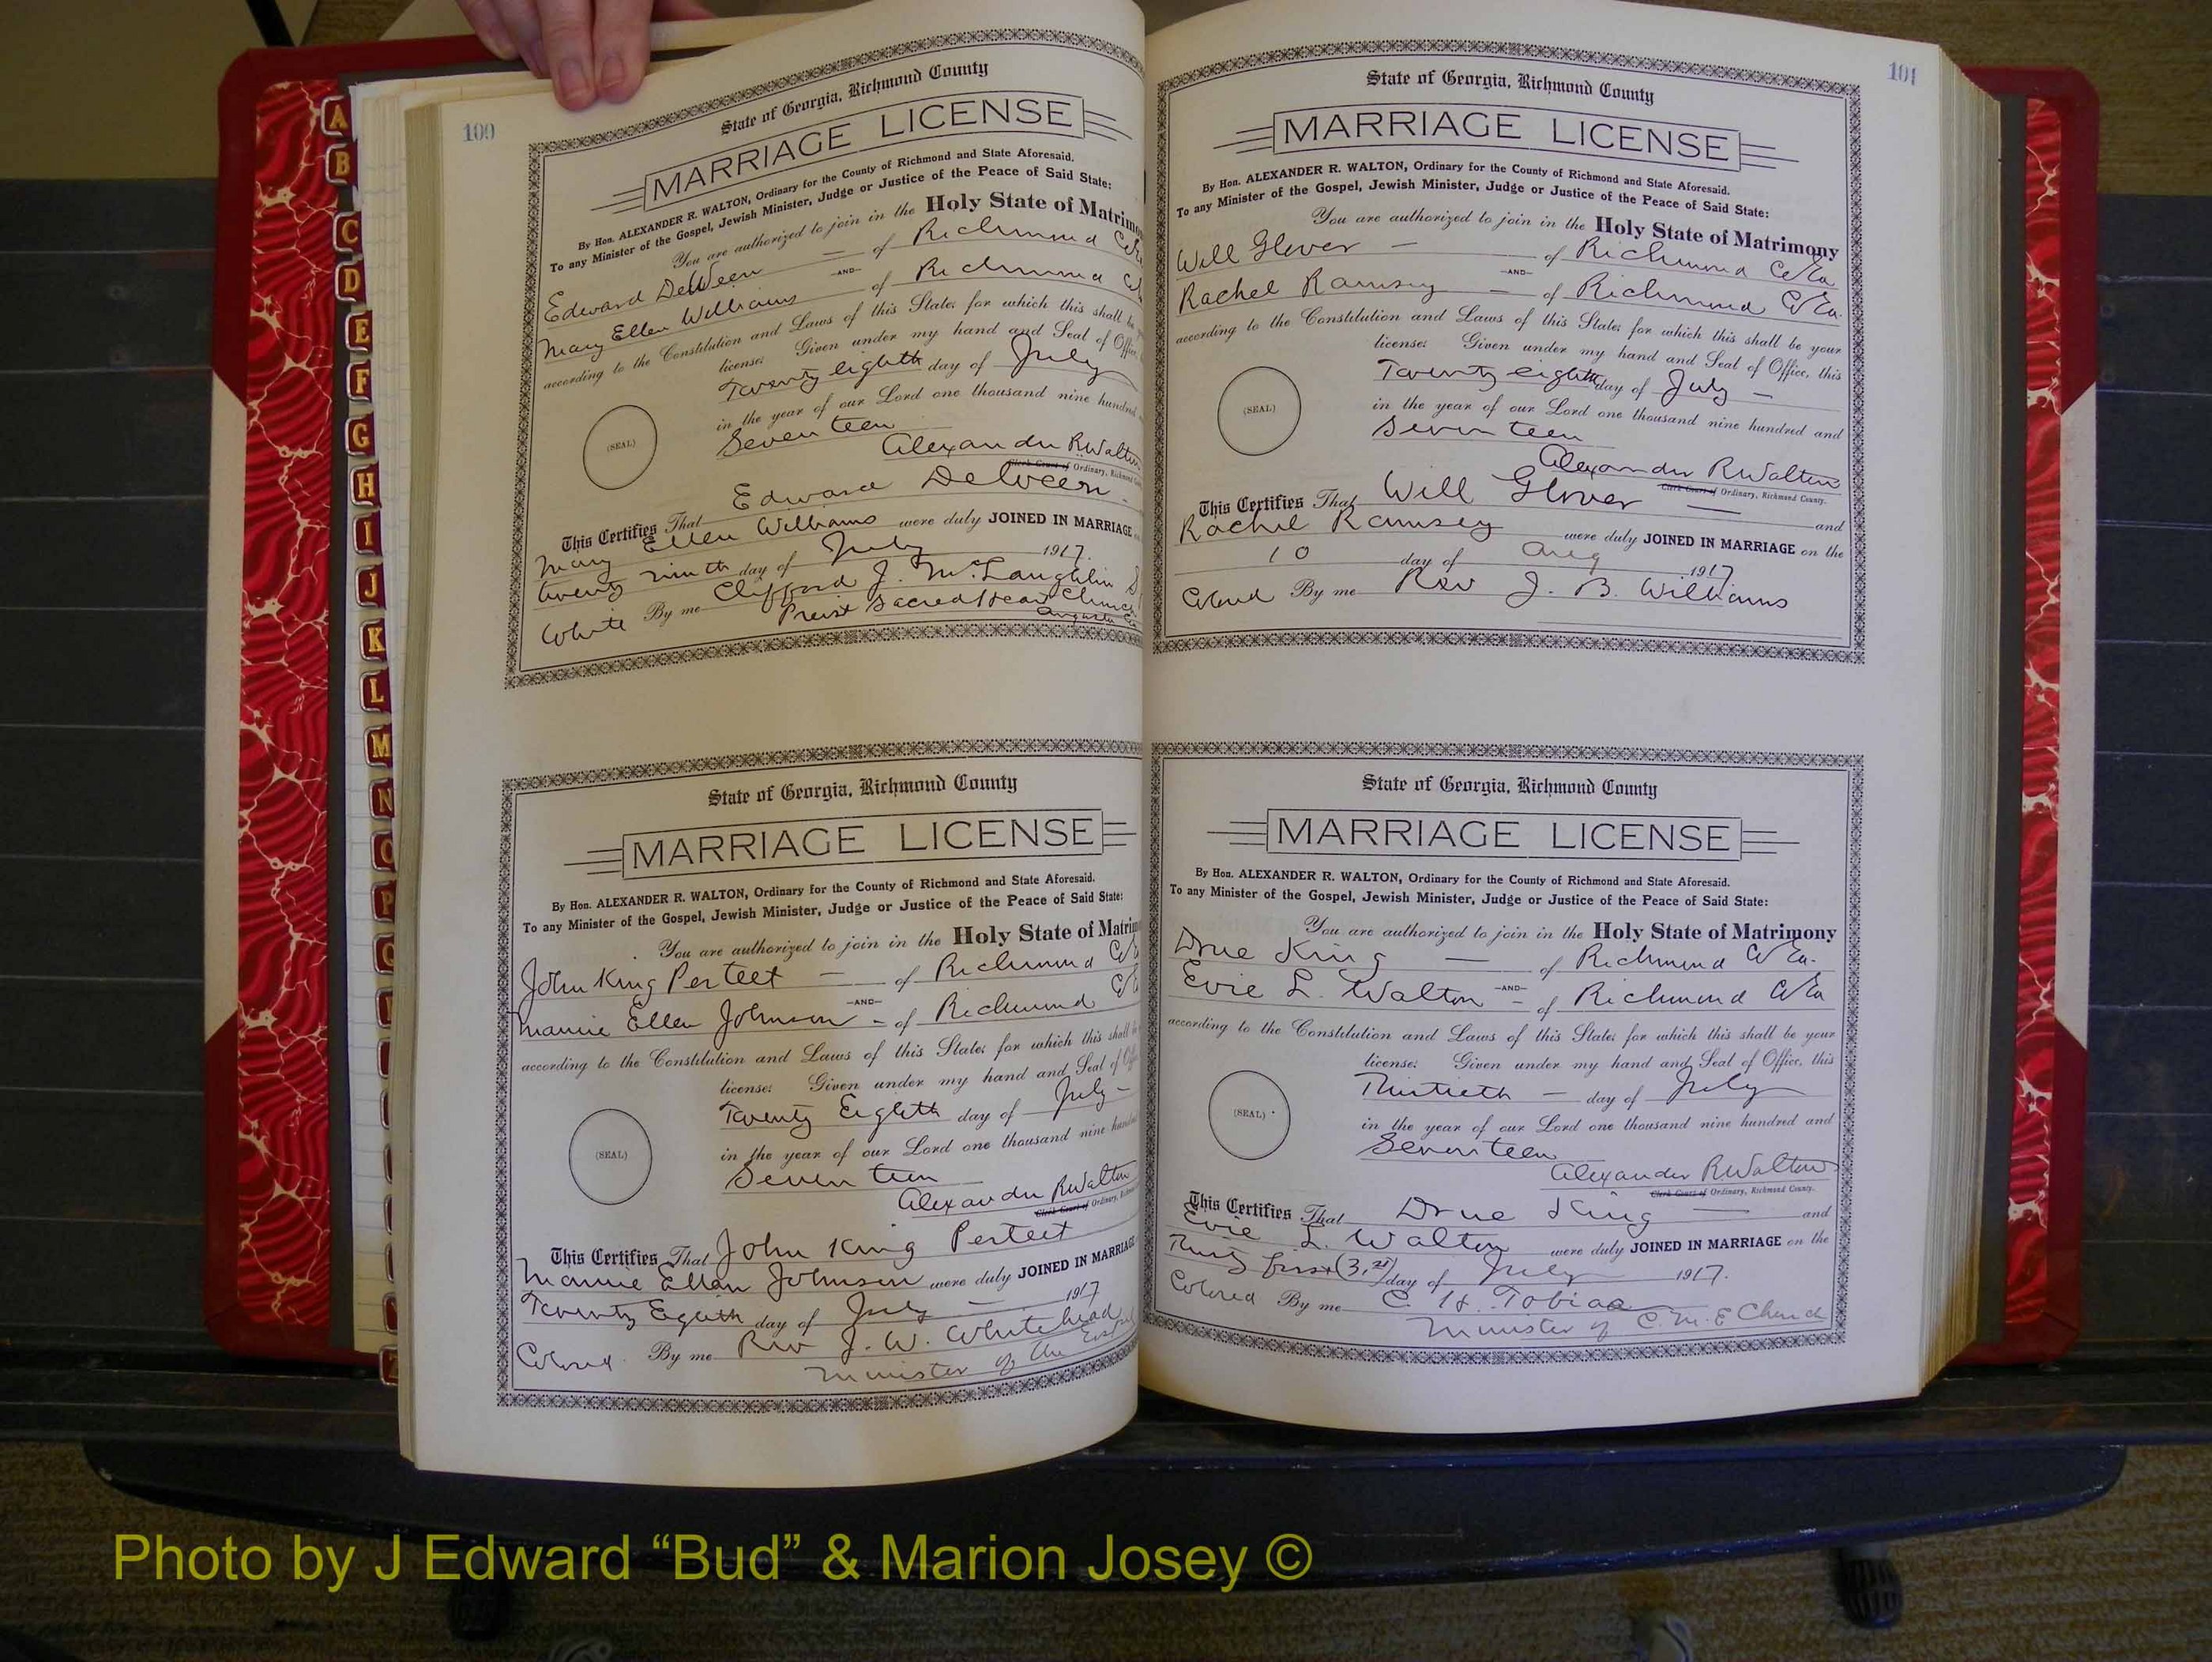 A
B
C
D
E
F
G
H
I
J
K
L
M
N
O
P
Q
100
State of Georgia, Richmond County
MARRIAGE LICENSE
By Hon. ALEXANDER R. WALTON, Ordinary for the County of Richmond and State Aforesaid.
To any Minister of the Gospel, Jewish Minister, Judge or Justice of the Peace of Said State:
You are authorized to join in the Holy State of Matrimo
Edward DeVeen — of Richmond Co
—AND—
Mary Ellen Williams of Richmond Co
according to the Constitution and Laws of this State; for which this shall be
license: Given under my hand and Seal of Office,
Twenty eighth day of July
in the year of our Lord one thousand nine hundred
Seventeen
(SEAL)
Alexander R Walton
Clerk Court of Ordinary, Richmond
This Certifies That Edward DeVeen
Mary Ellen Williams were duly JOINED IN MARRIAGE
twenty ninth day of July 1917.
White By me Clifford J. McLaughlin
Preist Sacred Heart Church
Augusta Ga
State of Georgia, Richmond County
MARRIAGE LICENSE
By Hon. ALEXANDER R. WALTON, Ordinary for the County of Richmond and State Aforesaid.
To any Minister of the Gospel, Jewish Minister, Judge or Justice of the Peace of Said State:
You are authorized to join in the Holy State of Matrim
John King Perteet — of Richmond Co
—AND—
Mamie Ellen Johnson - of Richmond Co
according to the Constitution and Laws of this State; for which this shall
license: Given under my hand and Seal of
Twenty Eighth day of July -
in the year of our Lord one thousand nine hundred
Seventeen
(SEAL)
Alexander R Walton
Clerk Court of Ordinary,
This Certifies That John King Perteet
Mamie Ellen Johnson were duly JOINED IN MARRIAGE
Twenty Eighth day of July — 1917
Colored By me Rev J. W. Whitehead
Minister of the Gospel
101
State of Georgia, Richmond County
MARRIAGE LICENSE
By Hon. ALEXANDER R. WALTON, Ordinary for the County of Richmond and State Aforesaid.
To any Minister of the Gospel, Jewish Minister, Judge or Justice of the Peace of Said State:
You are authorized to join in the Holy State of Matrimony
Will Glover — of Richmond Co Ga.
—AND—
Rachel Ramsey — of Richmond Co Ga.
according to the Constitution and Laws of this State; for which this shall be your
license: Given under my hand and Seal of Office, this
Twenty eighth day of July —
in the year of our Lord one thousand nine hundred and
Seventeen
(SEAL)
Alexander R Walton
Clerk Court of Ordinary, Richmond County.
This Certifies That Will Glover — and
Rachel Ramsey were duly JOINED IN MARRIAGE on the
10 day of Aug 1917
Colored By me Rev J. B. Williams
State of Georgia, Richmond County
MARRIAGE LICENSE
By Hon. ALEXANDER R. WALTON, Ordinary for the County of Richmond and State Aforesaid.
To any Minister of the Gospel, Jewish Minister, Judge or Justice of the Peace of Said State:
You are authorized to join in the Holy State of Matrimony
Drue King — of Richmond Co Ga.
—AND—
Evie L. Walton - of Richmond Co Ga
according to the Constitution and Laws of this State; for which this shall be your
license: Given under my hand and Seal of Office, this
Thirtieth — day of July
in the year of our Lord one thousand nine hundred and
Seventeen
(SEAL)
Alexander R Walton
Clerk Court of Ordinary, Richmond County.
This Certifies That Drue King — and
Evie L. Walton were duly JOINED IN MARRIAGE on the
Thirty first (31st) day of July 1917.
Colored By me C. H. Tobias
Minister of C. M. E Church
Photo by J Edward “Bud” & Marion Josey ©